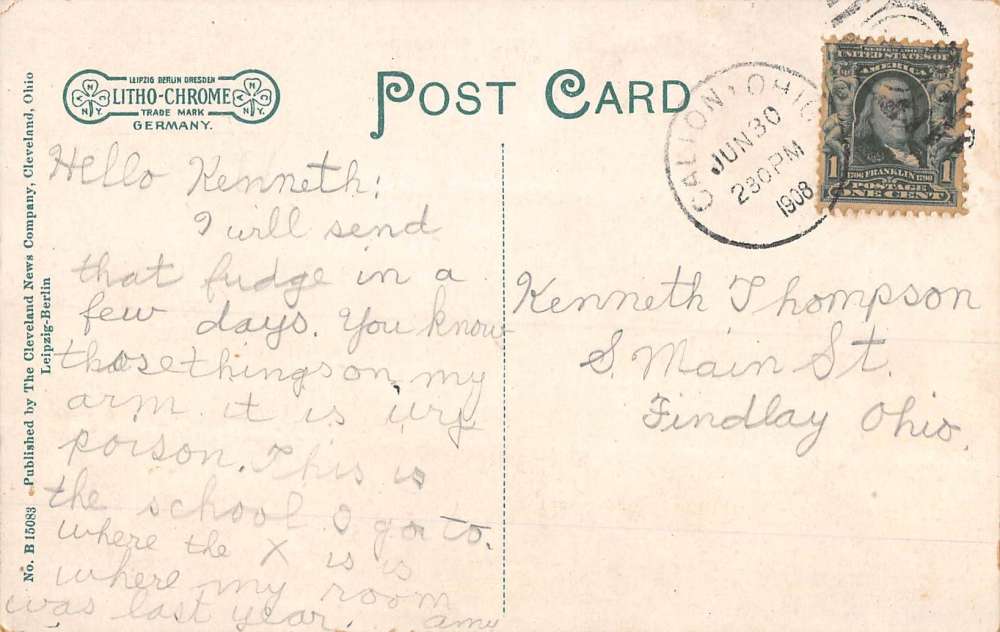 LEIPZIG BERLIN DRESDEN
LITHO-CHROME
TRADE MARK
GERMANY.
A C N.Y.
A C N.Y.
POST CARD
GALION, OHIO
JUN 30
230 PM
1908
SERIES 1902
UNITED STATES OF
AMERICA
1706 FRANKLIN 1790
1 POSTAGE 1
ONE CENT
No. B 15083 Published by The Cleveland News Company, Cleveland, Ohio
Leipzig-Berlin
Hello Kenneth:
I will send
that fudge in a
few days. You know
those things on my
arm. it is ivy
poison. This is
the school I go to.
where the X is is
where my room
was last year. amy
Kenneth Thompson
S. Main St.
Findlay Ohio.